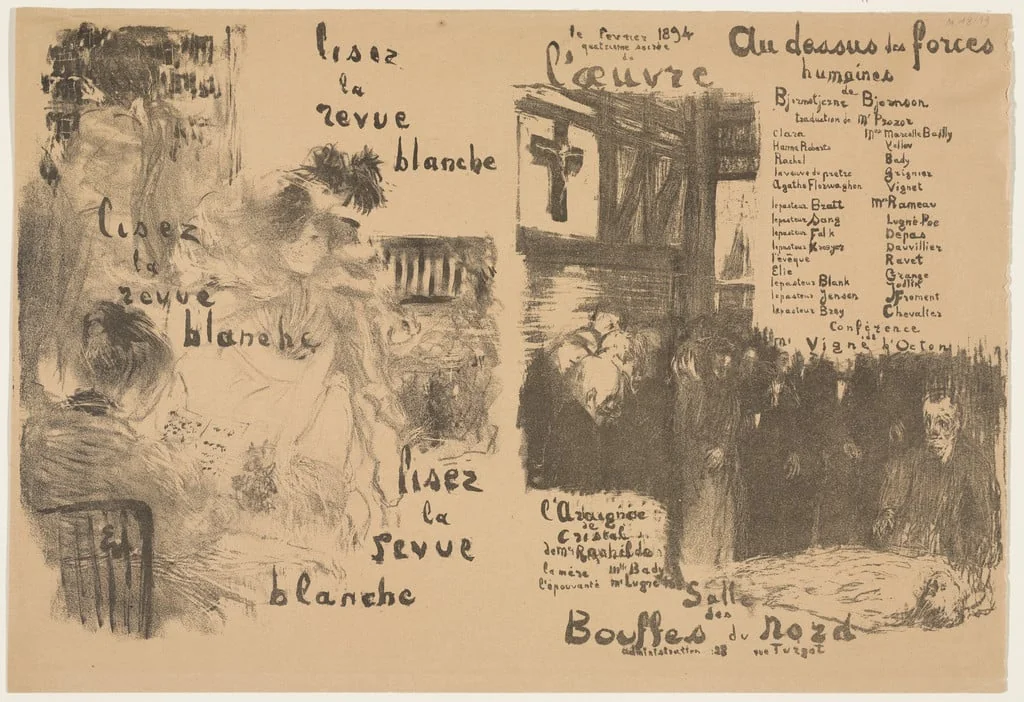 lisez
la
revue
blanche
lisez
la
revue
blanche
lisez
la
revue
blanche
le fevrier 1894
quatrieme soirée
de
l'œuvre
Au dessus des forces
humaines
de
Bjornstjerne Bjornson
traduction de Mr Prozor
Clara Mme Marcelle Bailly
Hanna Roberts Yellov
Rachel Bady
la veuve du pretre Grignier
Agathe Florvaghen Vignet
le pasteur Bratt Mr Rameau
le pasteur Sang Lugné-Poe
le pasteur Falk Depas
le pasteur Kroeyer Dauvillier
l'évêque Ravet
Elie Grange
le pasteur Blank Joditk
le pasteur Jensen Froment
le pasteur Brey Chevalier
Conférence
de
Mr Vigné d'Octon
l'Araignée
de
Cristal
de Mme Rachilde
la mère Mlle Bady
l'épouvanté Mr Lugné
Salle
des
Bouffes du Nord
administration : 28 rue Turgot